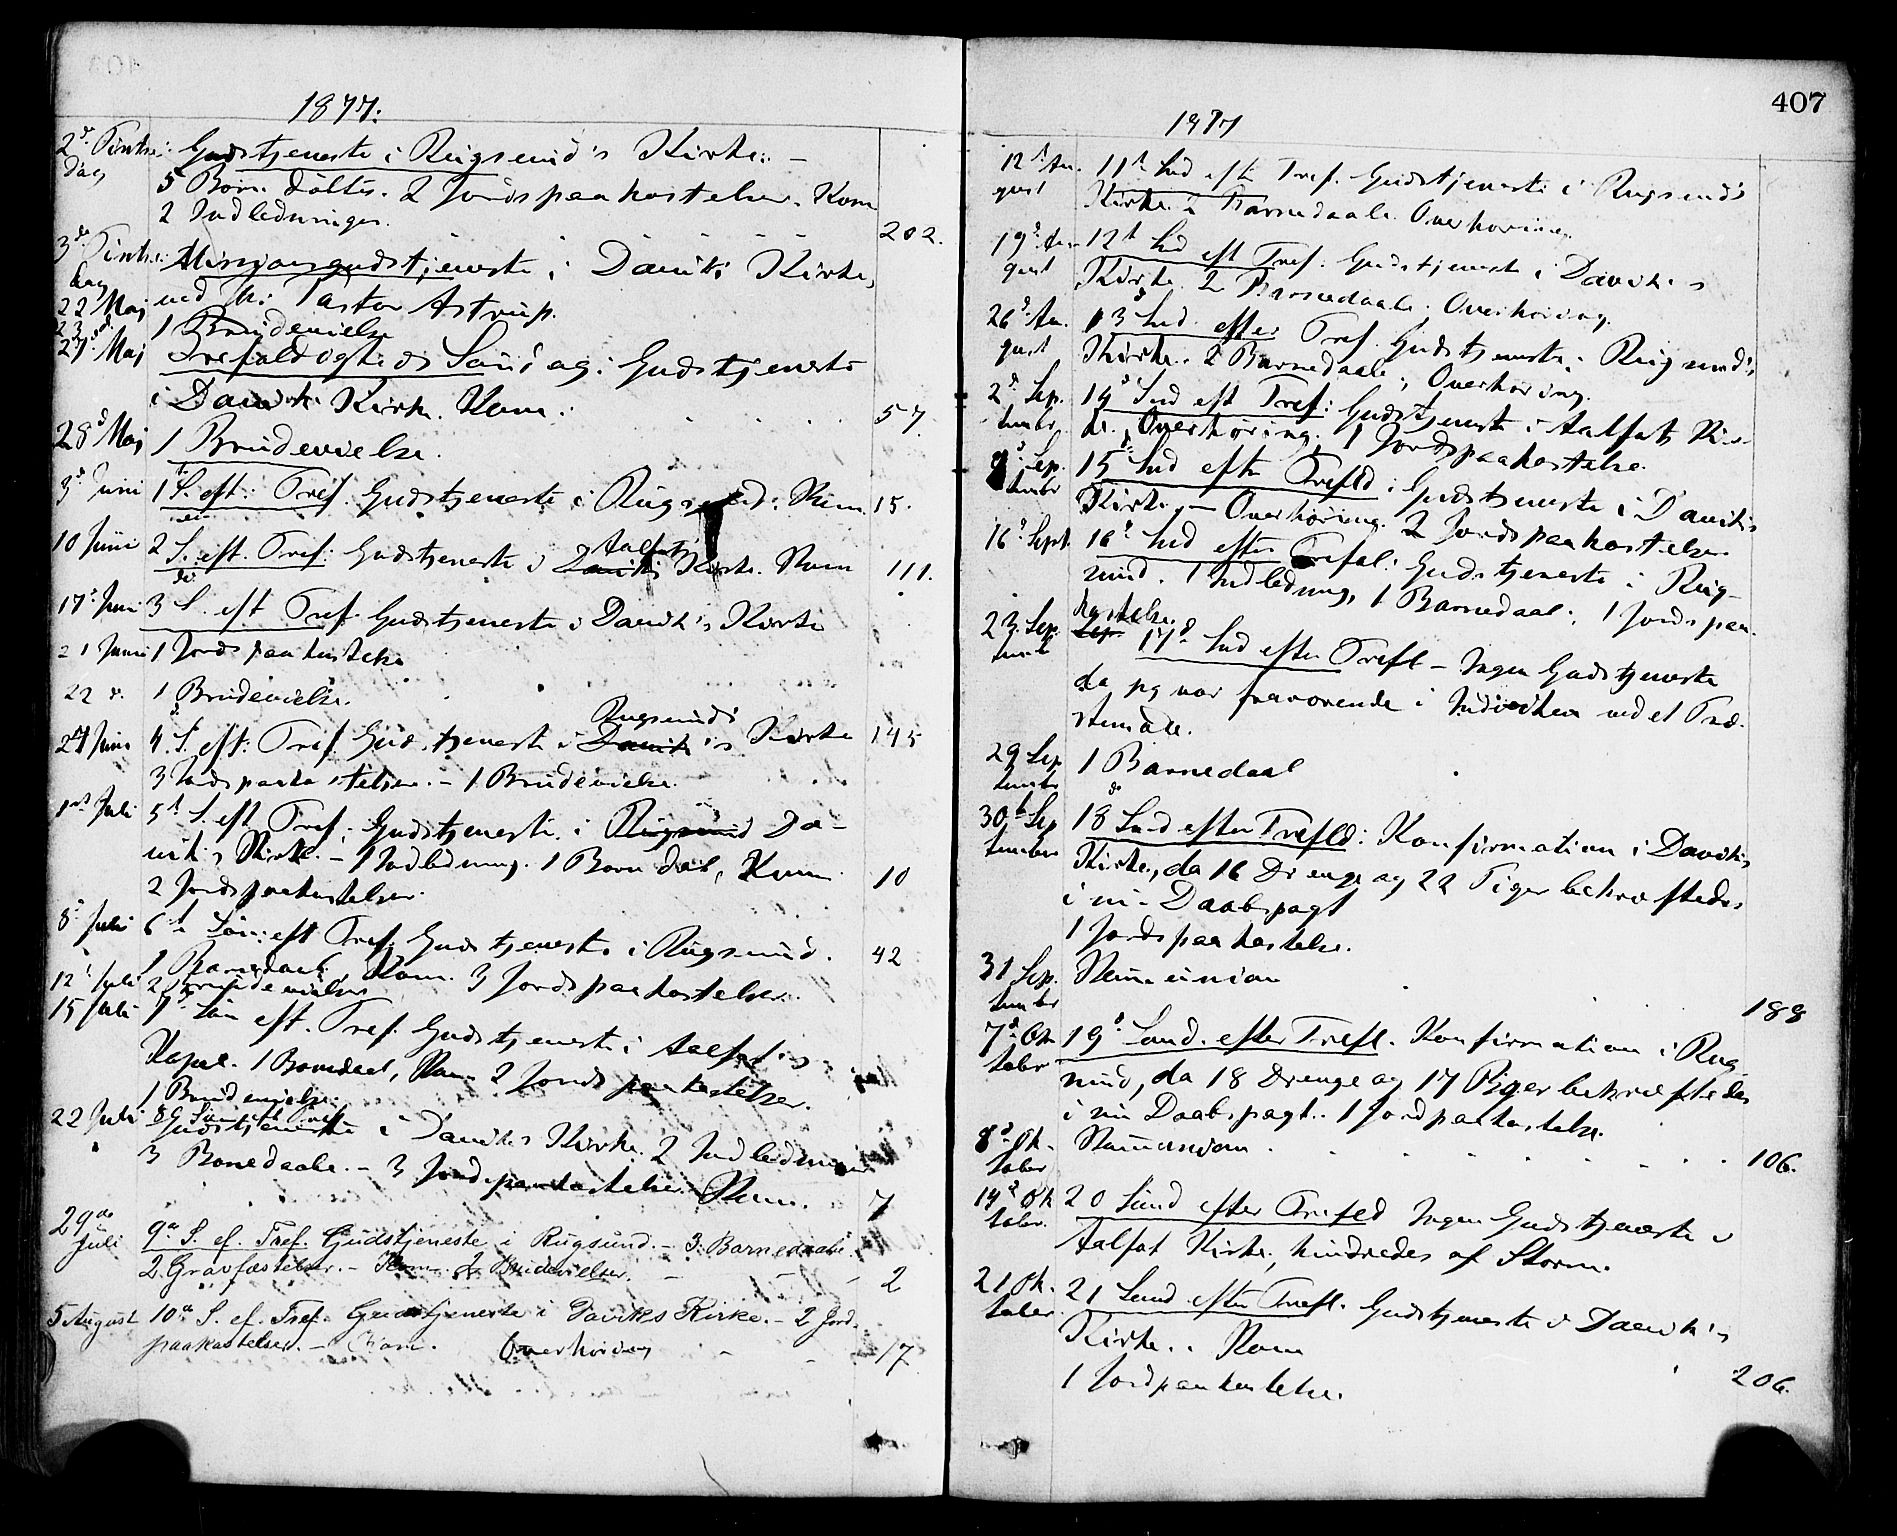 1877:
2d Pintse- Gudstjeneste i Rugsund's Kirke. –
dag 5 Børn døbtes. 2 Jordspaakastelser. Kom
2 Indledninger. 202.
3die Pintse- Missionsgudstjeneste i Daviks Kirke,
dag ved Hr. Pastor Astrup.
22 Maj 1 Brudevielse
27 Maj Trefoldigheds Søndag: Gudstjeneste
i Daviks Kirke. Kom. 57.
28d Maj 1 Brudevielse.
3d Juni 1 S. eft: Tref. Gudstjeneste i Rugsund: Kom. 15.
10 Juni 2 S. eft. Tref: Gudstjeneste i Daviks Aalfot's Kirke. Kom 111.
17d Juni 3 S. eft Tref. Gudstjeneste i Davik's Kirke
21 Juni 1 Jordspaakastelse
22 d. 1 Brudevielse.
24 Juni 4. S. eft: Tref. Gudstjeneste i Davik Rugsund's Kirke 145
3 Jordspaakastelser. – 1 Brudevielse.
1st Juli 5t S. eft Tref: Gudstjeneste i Rugsund Da-
vik's Kirke. – 1 Indledning. 1 Barn døb, Kom. 10
2 Jordspaakastelser.
8d Juli 6t Søn: eft Tref. Gudstjeneste i Rugsund. 42
1 Barnedaab, Kom. 3 Jordspaakastelser.
12t Juli 2 Brudevielser
15 Juli 7d Søn eft. Tref. Gudstjeneste i Aalfot's
Kapel. 1 Barnedaab, Kom. 2 Jordspaakastelser.
1 Brudevielse.
8 Søn eft Tref
22 Juli Gudstjeneste i Daviks Kirke. 2 Indledninger
3 Barnedaabe. – 3 Jordspaakastelser. Kom. 7
29de 9a S. ef. Tref. Gudstjeneste i Rugsund. – 3. Barnedaabe.
Juli 2. Gravfæstelser. – Kom. 2 Brudevielser. 2
5 August 10a S. ef. Tref. Gudstjeneste i Daviks Kirke. – 2 Jord-
paakastelser. – Kom. Overhøring 17
407
1877
12t Au- 11t Sud eft Tref. Gudstjeneste i Rugsund's
gust Kirke. 2 Barnedaabe. Overhøring.
19d Au- 12t Sud eft Tref. Gudstjeneste i Davik's
gust Kirke. 2 Barnedaabe; Overhøring.
26d Au- 13d Sud. efter Tref. Gudstjeneste i Rugsund's
gust Kirke. 2 Barnedaabe; Overhøring.
2d Sep- 14d Sud eft Tref: Gudstjeneste i Aalfots Kir-
tember ke. Overhøring. 1 Jordspaakastelse.
9d Sep- 15d Sud efter Trefld: Gudstjeneste i Davik's
tember Kirke. – Overhøring. 2 Jordspaakastelser
16d Sept 16d Sud efter Trefol: Gudstjeneste i Rug-
sund. 1 Indledning, 1 Barnedaab; 1 Jordspaa-
kastelse.
23. Sep- 17d Sud efter Trefl – Ingen Gudstjeneste
tember da jeg var fraværende i Indviken ved et Præ-
stemøde.
29 Sep- 1 Barnedaab
tember
30t Sep- 18de Sud efter Trefld: Konfirmation i Daviks
tember Kirke, da 16 Drenge og 22 Piger bekræftedes
i sin Daabspagt
1 Jordspaakastelse.
31 Sep- Kommunion
tember 188
7d Ok- 19d Sønd. efter Trefl. Konfirmation i Rug-
tober sund, da 18 Drenge og 17 Piger bekræftedes
i sin Daabspagt. 1 Jordpaakastelse.
8d Ok- Kommunion.
tober 106.
14d Ok- 20 Sund efter Trefld Ingen Gudstjeneste i
tober. Aalfot Kirke, hindredes af Storm.
21 Ok- 21 Sund efter Trefl. Gudstjeneste i Davik's
tober Kirke. Kom
1 Jordpaakastelse. 206.